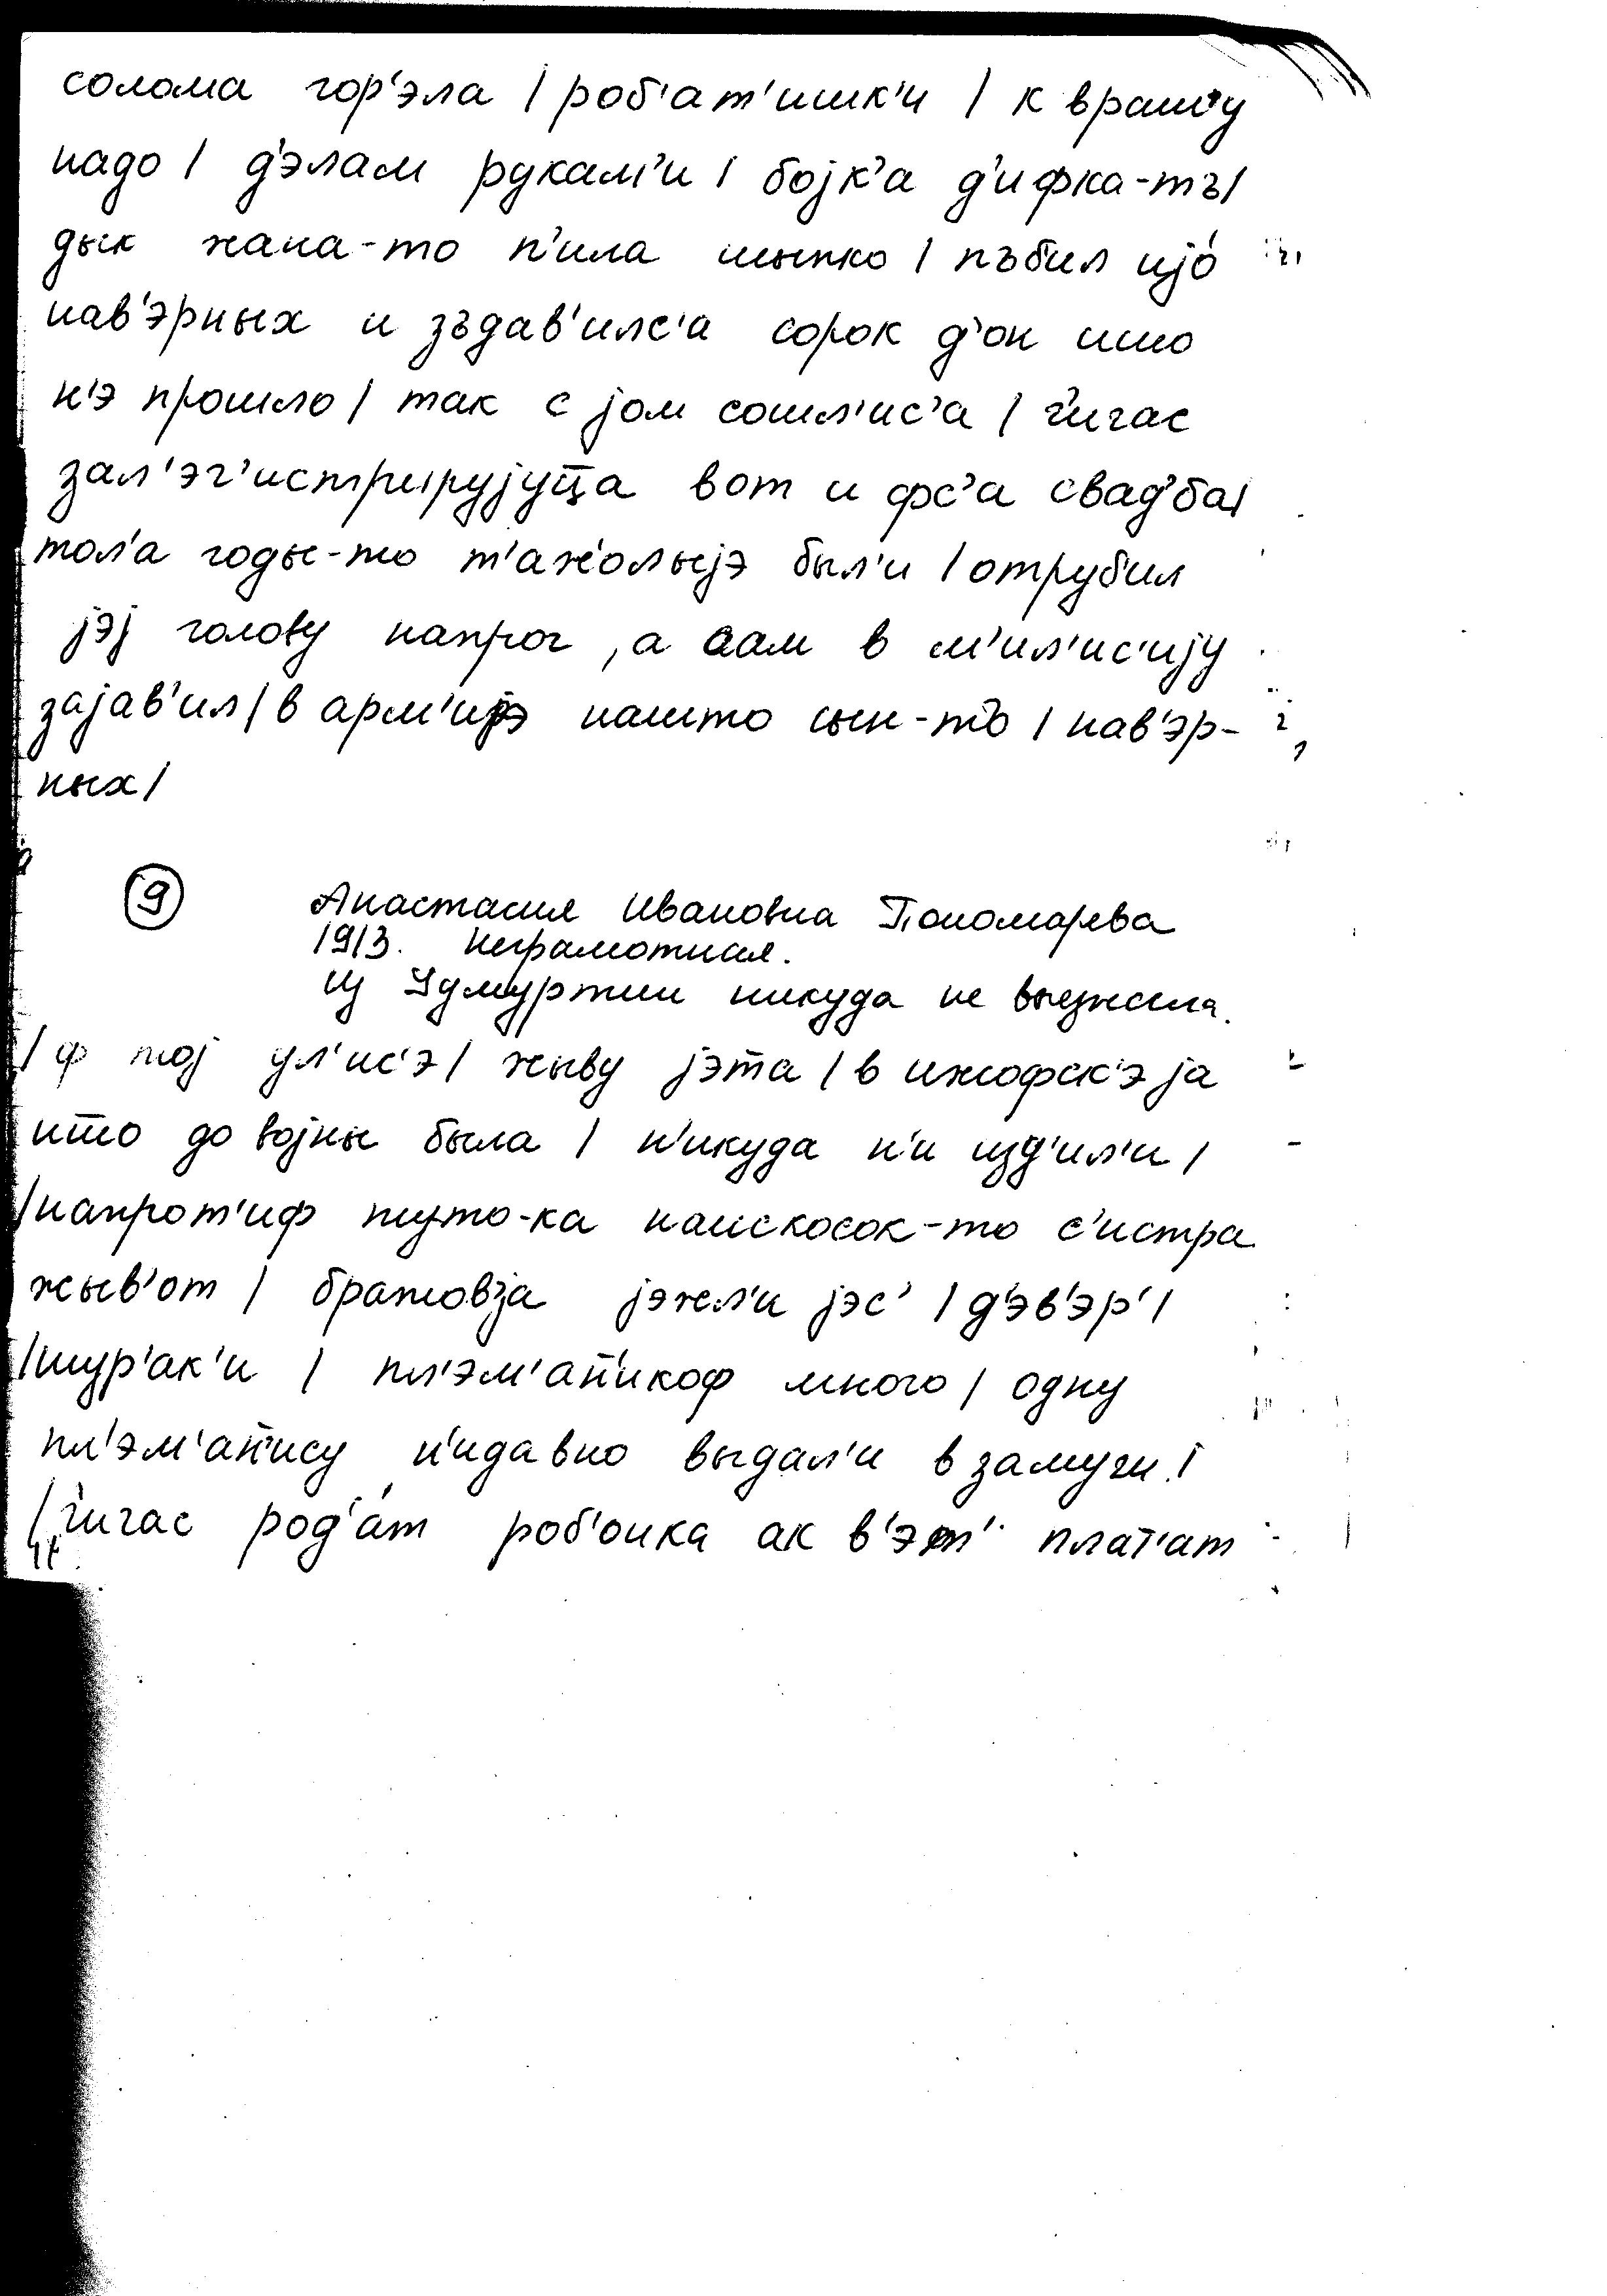 солома гор'эла | роб'ат'ишк'и | к врашу
надо | д'элам рукам'и | бојк'а д'ифка-тъ|
дык жана-то п'ила шыпко | пъбил ијо́
нав'эрных и зъдав'илс'а сорок д'он ишо
н'э прошло | так с јом сошл'ис'а | ч'ичас
зал'эг'истрырујуц̄а вот и фс'а свад'ба|
тол'а годы-то т'аж'олыјэ был'и | отрубил
јэј голову напроч, а сам в м'ил'ис'ију
зајав'ил | в арм'ијэ нашто сын-то | нав'эр-
ных |
⑨ Анастасия Ивановна Пономарева
1913. Неграмотная.
Из Удмуртии никуда не выезжала.
| ф тој ул'ис'э | жыву јэт̄а | в ижофск'э ја
ишто до војны была | н'икуда н'и изд'ил'и |
| напрот'иф туто-ка наискосок-то с'истра
жыв'от | братовја јэжл'и јэс' | д'эв'эр' |
| шур'ак'и | пл'эм'ан̄'икоф много | одну
пл'эм'ан̄'ису н'идавно выдал'и в замучи |
| ч'ичас род'а́т роб'онка ак в'эт' плат'ат